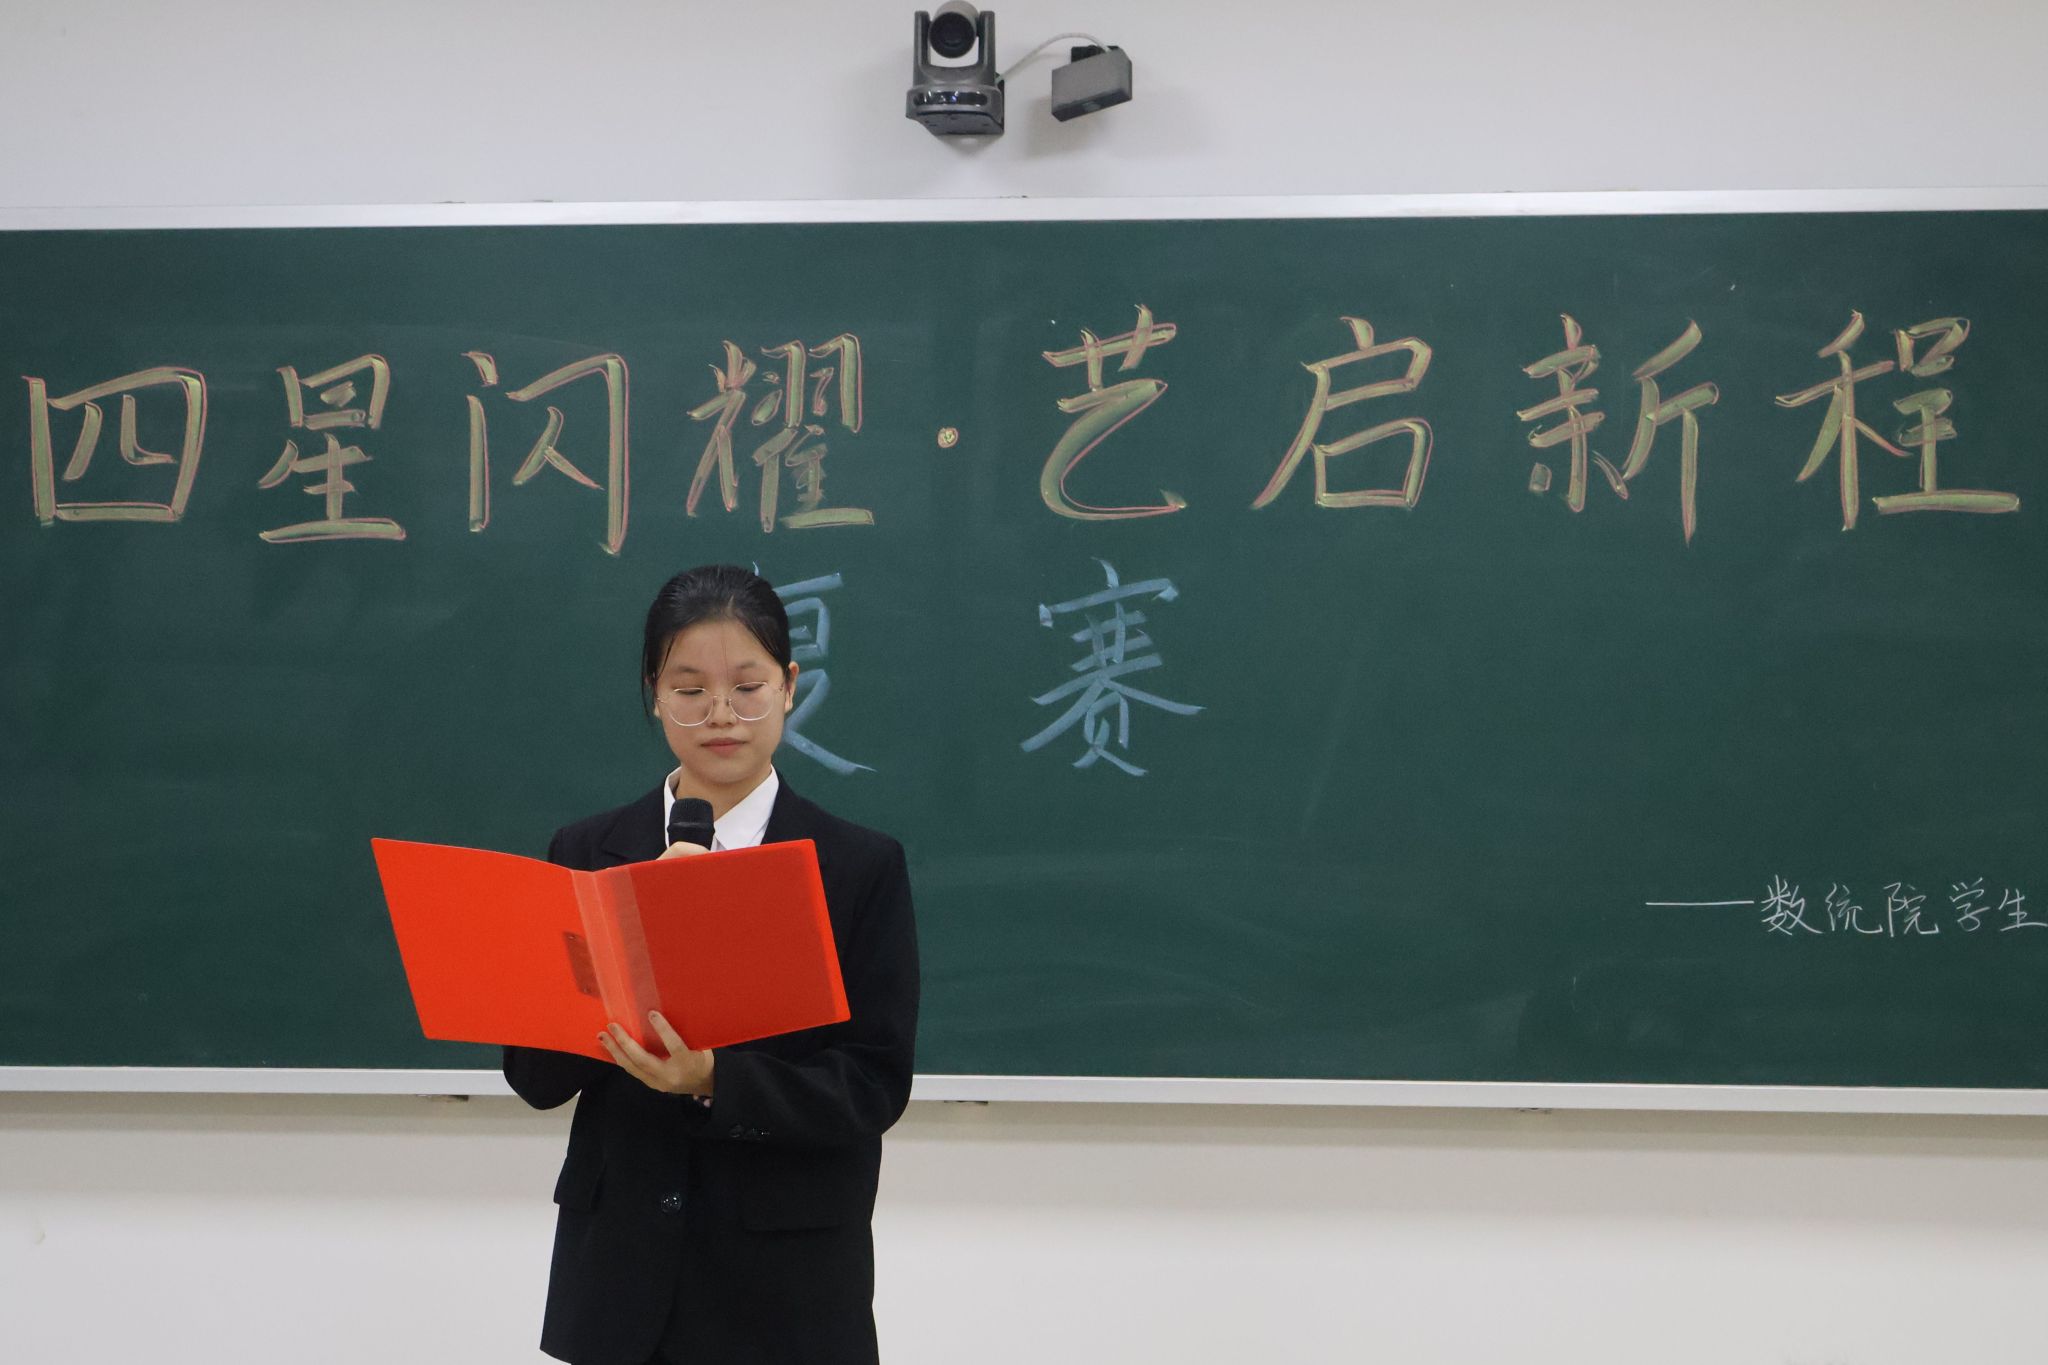 四星闪耀·艺启新程
复赛
——数统院学生